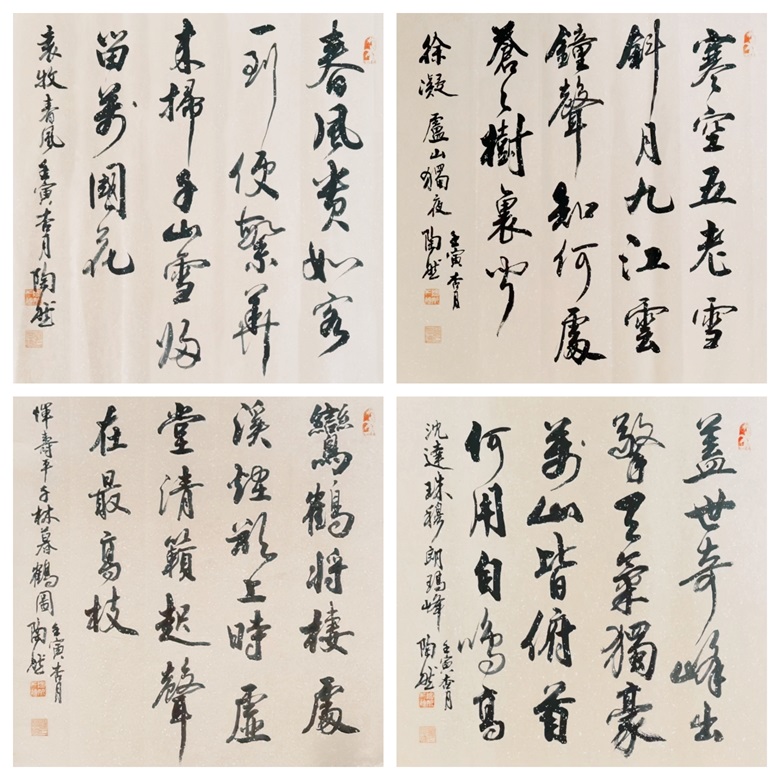 春風貴如客
一到便繁華
来掃千山雪歸
留萬國花
袁牧春風壬寅杏月陶然
寒空五老雪
斜月九江雲
鐘聲知何處
蒼々樹裏聞
徐凝 廬山獨夜 壬寅杏月
陶然
鸞鶴將棲處
溪煙欲上時虛
堂清籟起聲
在最高枝
惲壽平千林暮鶴圖 壬寅杏月
陶然
蓋世奇峰出
擎天氣獨豪
萬山皆俯首
何用自鳴高
沈達珠穆朗瑪峰 壬寅杏月
陶然